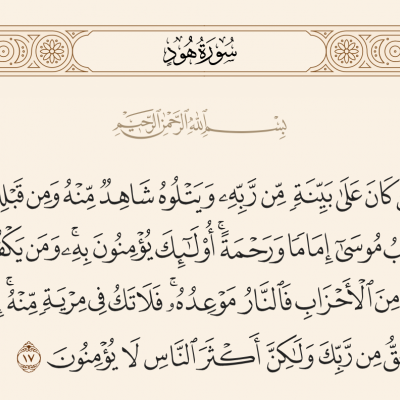 سُورَةُ هُودٍ
بِسْمِ ٱللَّهِ ٱلرَّحْمَٰنِ ٱلرَّحِيمِ
كَانَ عَلَىٰ بَيِّنَةٍ مِّن رَّبِّهِۦ وَيَتْلُوهُ شَاهِدٌ مِّنْهُ وَمِن قَبْلِهِ
بُ مُوسَىٰٓ إِمَامًا وَرَحْمَةً ۚ أُو۟لَٰٓئِكَ يُؤْمِنُونَ بِهِۦ ۚ وَمَن يَكْفُ
مِنَ ٱلْأَحْزَابِ فَٱلنَّارُ مَوْعِدُهُۥ ۚ فَلَا تَكُ فِى مِرْيَةٍ مِّنْهُ ۚ
قُّ مِن رَّبِّكَ وَلَٰكِنَّ أَكْثَرَ ٱلنَّاسِ لَا يُؤْمِنُونَ ١٧